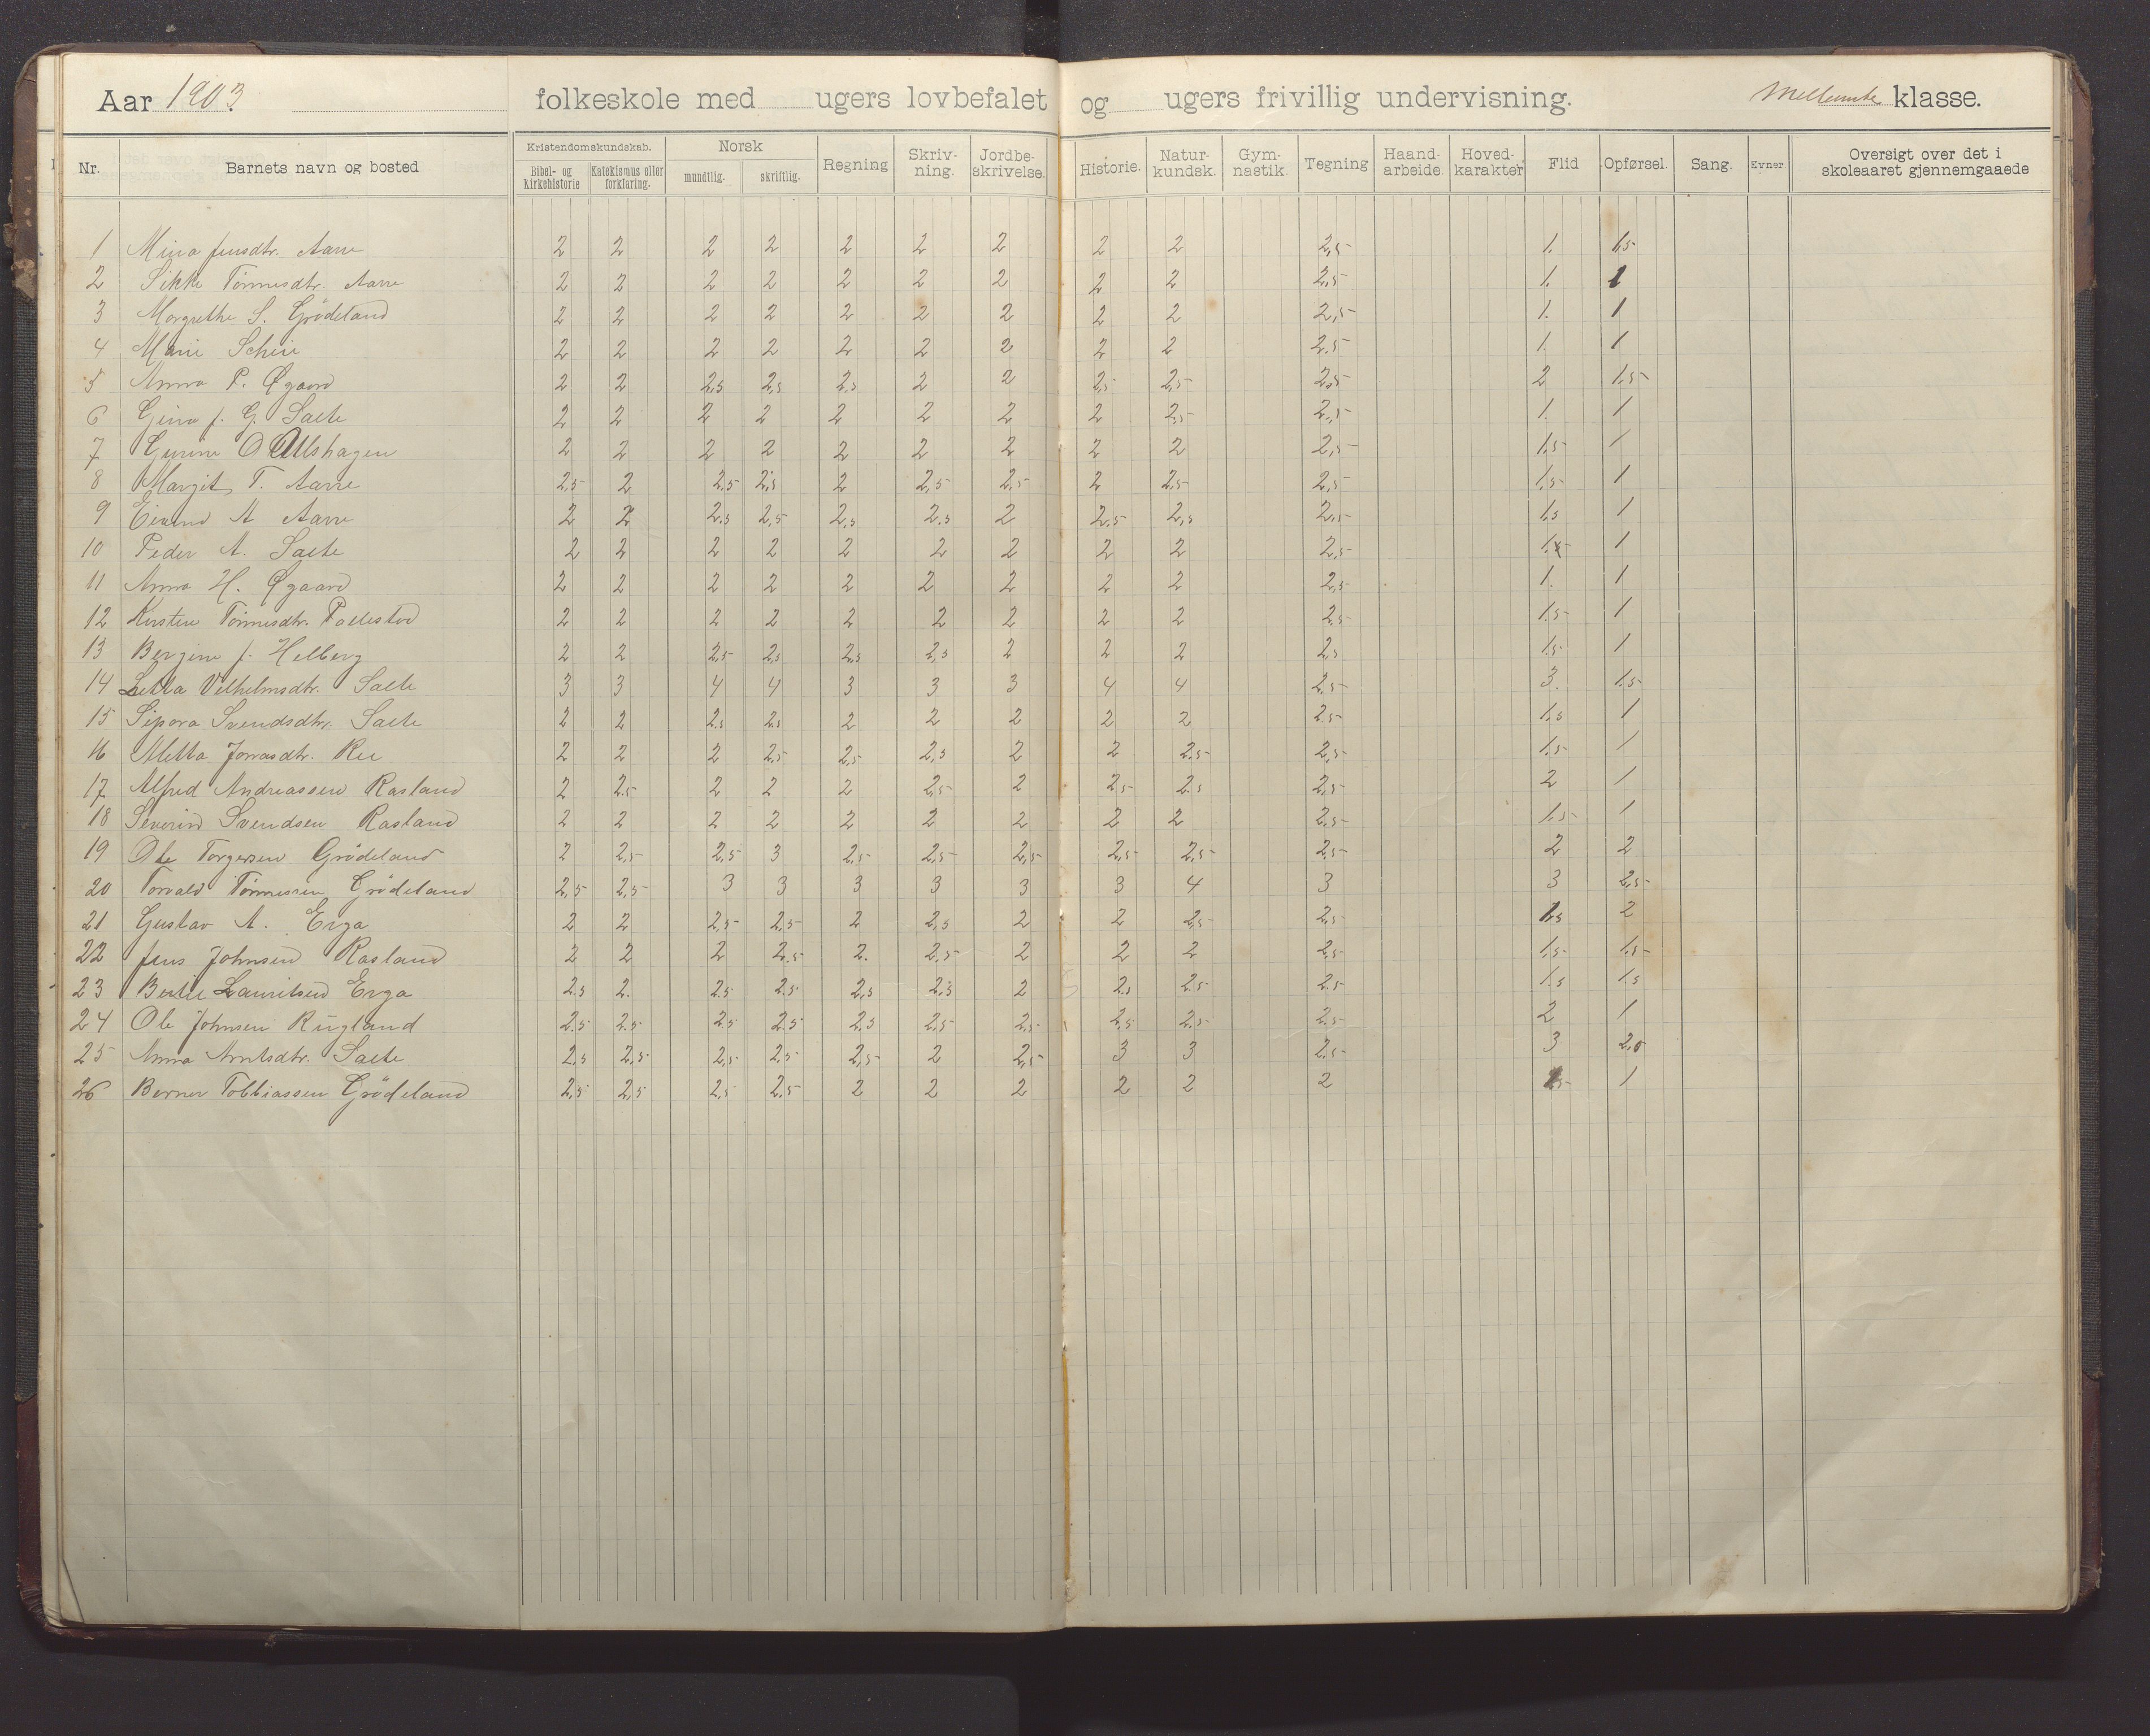 Aar 1903 folkeskole med ugers lovbefalet og ugers frivillig undervisning. Mellemste klasse.
Nr. Barnets navn og bosted Kristendomskundskab. Bibel- og kirkehistorie Katekismus eller forklaring. Norsk mundtlig. skriftlig. Regning Skrivning. Jordbeskrivelse. Historie. Naturkundsk. Gymnastik. Tegning Haandarbeide. Hovedkarakter Flid Opførsel. Sang. Evner Oversigt over det i skoleaaret gjennemgaaede
1 Mina Jensdtr. Aarre 2 2 2 2 2 2 2 2 2 2,5 1. 1.5
2 Sikke Tönnesdtr. Aarre 2 2 2 2 2 2 2 2 2 2,5 1. 1
3 Margrethe S. Grödeland 2 2 2 2 2 2 2 2 2 2,5 1. 1
4 Marie Scheie 2 2 2 2 2 2 2 2 2 2.5 1. 1
5 Anna P. Øgaard 2 2 2,5 2,5 2,5 2 2 2,5 2,5 2,5 2 1.5
6 Gina J. G. Salte 2 2 2 2 2 2 2 2 2,5 2,5 1. 1
7 Gurine O Ullshagen 2 2 2 2 2 2 2 2 2 2,5 1.5 1
8 Margit T. Aarre 2.5 2 2.5 2,5 2 2,5 2,5 2 2,5 2,5 1.5 1
9 Eivind A Aarre 2 2 2.5 2,5 2,5 2.5 2 2.5 2,5 2,5 1.5 1
10 Peder A. Salte 2 2 2 2 2 2 2 2 2 2,5 1.5 1
11 Anna H. Øgaard 2 2 2 2 2 2 2 2 2 2,5 1. 1
12 Kirsten Tönnesdtr. Pollestad 2 2 2 2 2 2 2 2 2 2.5 1.5 1
13 Bergine J. Helberg 2 2 2,5 2,5 2,5 2,5 2 2 2 2,5 1.5 1
14 Vilhelmsdtr. Salte 3 3 4 4 3 3 3 4 4 2.5 3. 1.5
15 Sipora Svendsdtr. Salte 2 2 2.5 2.5 2 2 2 2 2 2.5 1.5 1
16 Metta Jonasdtr. Ree 2 2 2 2.5 2,5 2,5 2 2 2.5 2,5 1.5 1
17 Alfred Andreassen Rasland 2 2.5 2 2 2 2,5 2 2,5 2.5 2,5 2 1
18 Severin Svendsen Rasland 2 2 2 2 2 2 2 2 2 2.5 1.5 1
19 Ole Torgersen Grödeland 2 2,5 2,5 3 2,5 2,5 2,5 2,5 2,5 2,5 2 2
20 Torvald Tönnessen Grödeland 2,5 2,5 3 3 3 3 3 3 4 3 3 2,5
21 Gustav A. Erga 2 2 2,5 2,5 2 2,5 2 2 2,5 2,5 1.5 2
22 Jens Johnsen Rasland 2 2 2 2.5 2. 2,5 2 2 2 2,5 1.5 1.5
23 Lauritsen Erga 2.5 2. 2.5 2.5 2,5 2,5 2 2,5 2.5 2.5 1.5 1.5
24 Ole Johnsen Ringland 2.5 2.5 2.5 2.5 2.5 2.5 2,5 2,5 2.5 2.5 2 1
25 Anna Arntsdtr. Salte 2,5 2,5 2,5 2,5 2,5 2 2,5 3 3 2.5 3 2,0
26 Berner Tobbiassen Grödeland 2,5 2,5 2,5 2.5 2 2 2 2 2 2 1.5 1